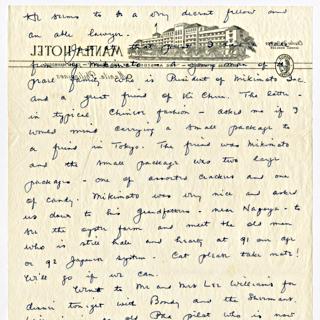 He seems to be a very decent fellow and
an able lawyer.
MANILA HOTEL
from Mr. Mikimoto - a young man of the
pearl family. He is President of Mikimoto Inc.
and a great friend of the Chins. The latter -
in typical Chinese fashion - asked me if I
would mind carrying a small package to
a friend in Tokyo. The friend was Mikimoto
and the small package was two large
packages - one of assorted crackers and one
of candy. Mikimoto was very nice and asked
us down to his grandfathers - near Nagoya - to
see the oyster farm and meet the old man
who is still hale and hearty at 91 our age
or 92 Japanese system. Cat please take note!
We'll go if we can.
Went to Mr and Mrs Lee Williams for
dinner tonight with Bondy and the Shermans.
old Paa pilot who is now